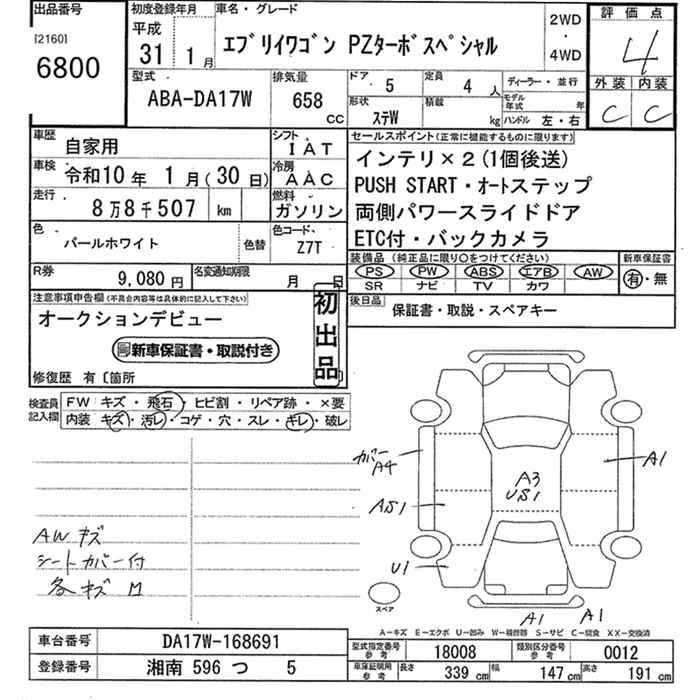 出品番号
[2160]
6800
初度登録年月
平成
31 1 月
車名・グレード
エブリイワゴン PZターボスペシャル
2WD
・
4WD
評価点
4
外装 内装
C C
型式
ABA-DA17W
排気量
658
CC
ドア
5
定員
4 人
形状
ステW
積載
kg
ディーラー・並行
モデル年式 年
ハンドル 左・右
車歴
自家用
シフト
IAT
車検
令和10年 1月(30日)
冷房
AAC
走行
8万8千507 km
燃料
ガソリン
色
パールホワイト
色替
色コード
Z7T
R券
9,080円
名変通知期限
月 日
セールスポイント(正常に機能するものに限ります)
インテリ×2(1個後送)
PUSH START・オートステップ
両側パワースライドドア
ETC付・バックカメラ
装備品(純正品に限り○をつけてください)
PS PW ABS エアB AW
SR ナビ TV カワ
新車保証書
有・無
後日品
保証書・取説・スペアキー
注意事項申告欄(不具合内容等は具体的に記入して下さい)
オークションデビュー
新車保証書・取説付き
初出品
修復歴 有〔箇所
検査員記入欄
FW キズ・飛石・ヒビ割・リペア跡・×要
内装 キズ・汚レ・コゲ・穴・スレ・キレ・破レ
AWキズ
シートカバー付
各キズ M
カバー
A4
AS1
U1
A3
US1
A1
A1
A1
スペア
A-キズ E-エクボ U-凹み W-補修跡 S-サビ C-腐食 XX-交換済
車台番号
DA17W-168691
登録番号
湘南 596 つ 5
型式指定番号
参考
18008
類別区分番号
参考
0012
車庫証明用
参考
長さ 339 cm 幅 147 cm 高さ 191 cm